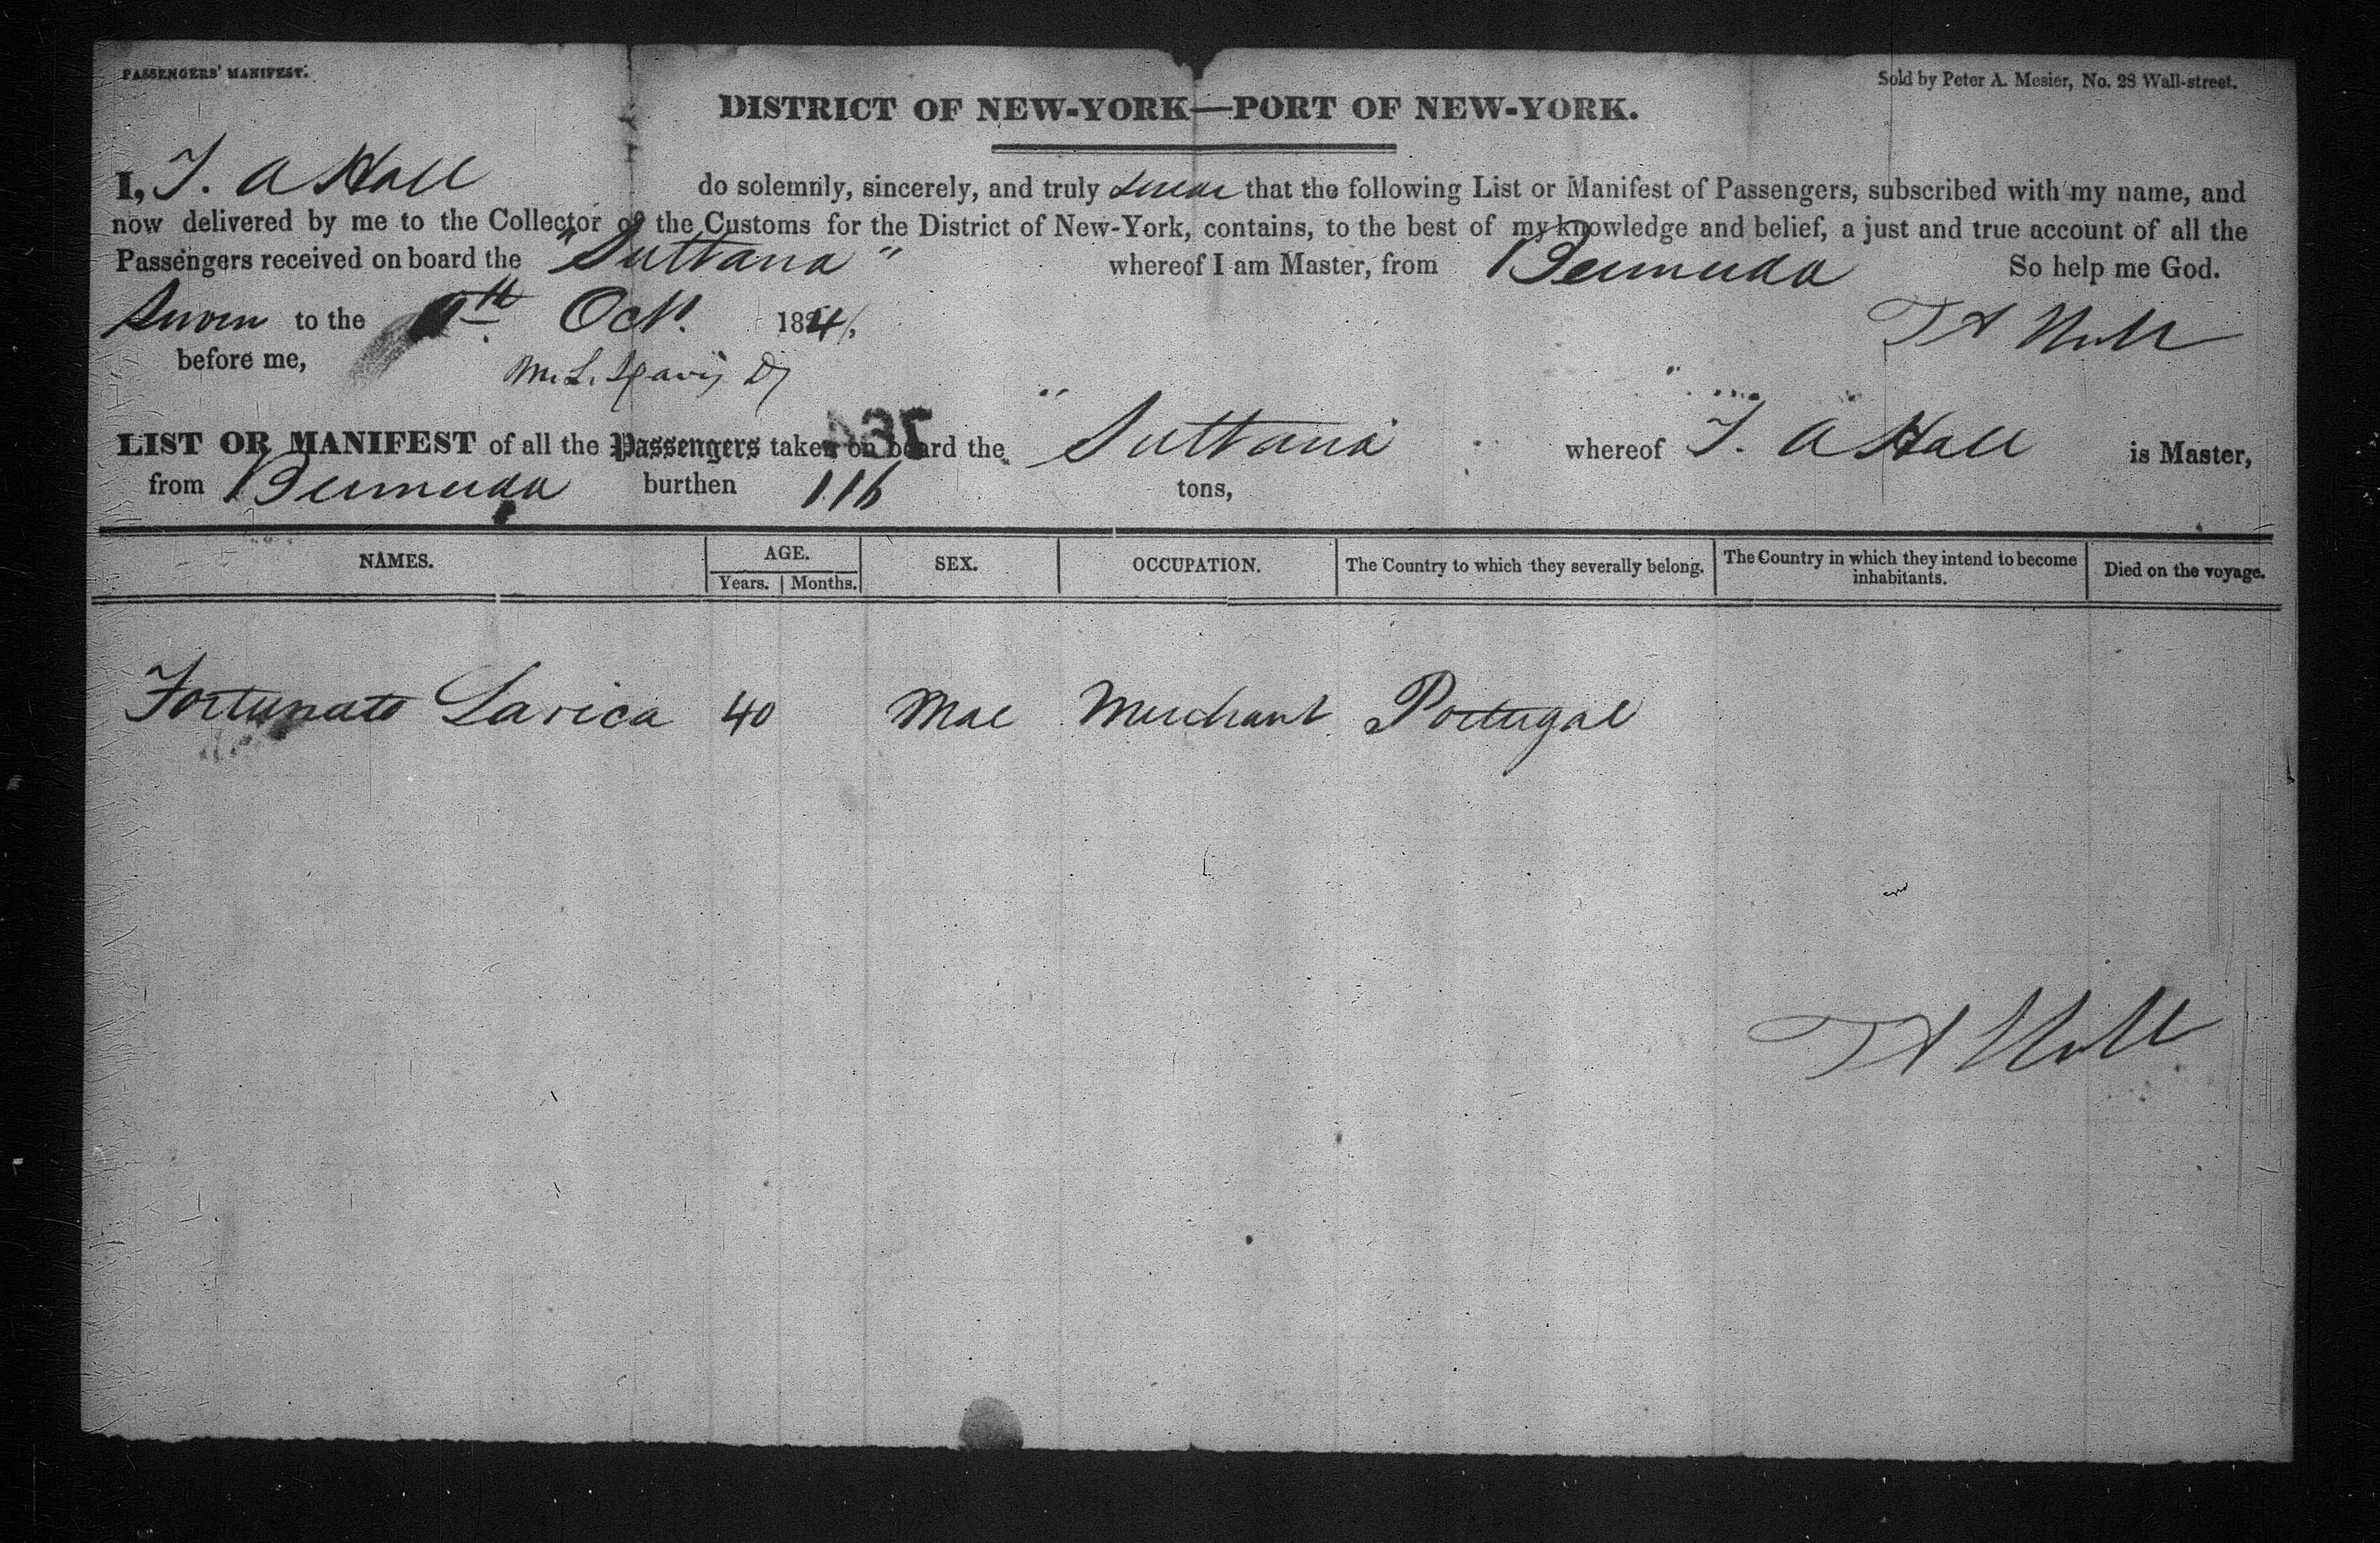 PASSENGERS' MANIFEST.
Sold by Peter A. Mesier, No. 28 Wall-street.
DISTRICT OF NEW-YORK—PORT OF NEW-YORK.
I, T. A Hall do solemnly, sincerely, and truly swear that the following List or Manifest of Passengers, subscribed with my name, and
now delivered by me to the Collector of the Customs for the District of New-York, contains, to the best of my knowledge and belief, a just and true account of all the
Passengers received on board the "Sultana" whereof I am Master, from Bermuda So help me God.
Sworn to the Oct. 184
T A Hall
before me,
LIST OR MANIFEST of all the Passengers taken on board the "Sultana" whereof T. A Hall is Master,
from Bermuda burthen 116 tons,
NAMES. AGE. SEX. OCCUPATION. The Country to which they severally belong. The Country in which they intend to become inhabitants. Died on the voyage.
Years. Months.
Fortunato Larica 40 Mae Merchant Portugal
T A Hall